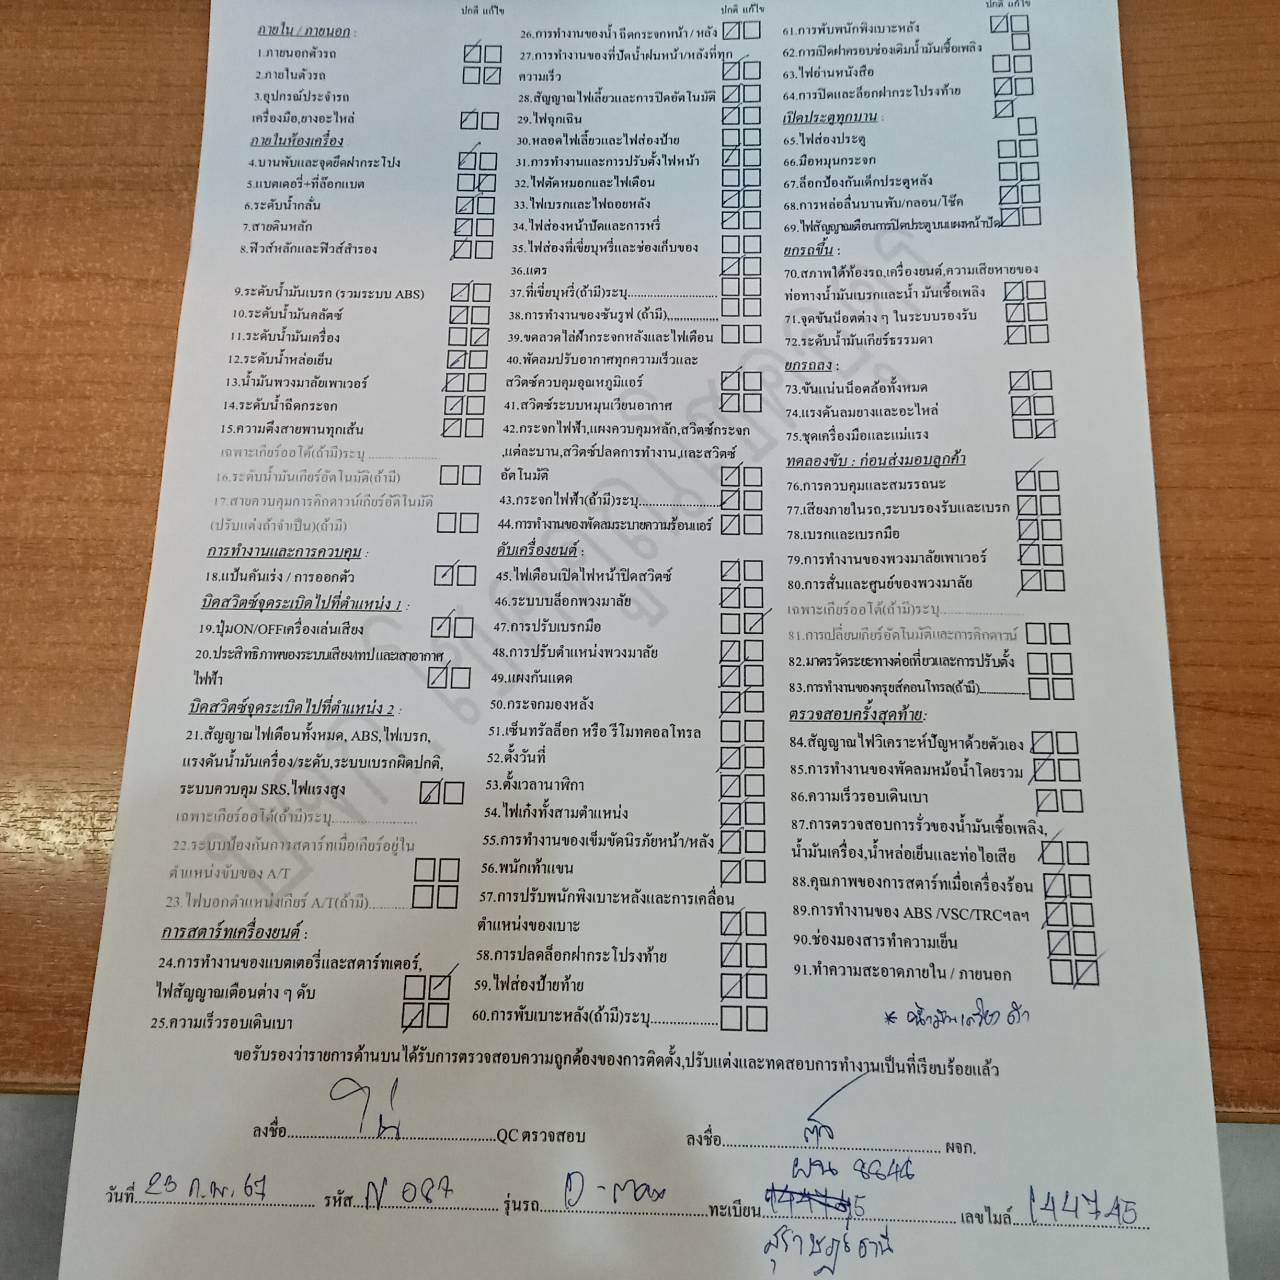 ปกติ แก้ไข
ภายใน / ภายนอก :
1.ภายนอกตัวรถ
2.ภายในตัวรถ
3.อุปกรณ์ประจำรถ
เครื่องมือ,ยางอะไหล่
ภายในห้องเครื่อง
4.บานพับและจุดยึดฝากระโปง
5.แบตเตอรี่+ที่ล๊อกแบต
6.ระดับน้ำกลั่น
7.สายดินหลัก
8.ฟิวส์หลักและฟิวส์สำรอง
9.ระดับน้ำมันเบรก (รวมระบบ ABS)
10.ระดับน้ำมันคลัตซ์
11.ระดับน้ำมันเครื่อง
12.ระดับน้ำหล่อเย็น
13.น้ำมันพวงมาลัยเพาเวอร์
14.ระดับน้ำฉีดกระจก
15.ความตึงสายพานทุกเส้น
เฉพาะเกียร์ออโต้(ถ้ามี)ระบุ
16.ระดับน้ำมันเกียร์อัตโนมัติ(ถ้ามี)
17.สายควบคุมการคิกดาวน์เกียร์อัติโนมัติ
(ปรับแต่งถ้าจำเป็น)(ถ้ามี)
การทำงานและการควบคุม :
18.แป้นคันเร่ง / การออกตัว
บิดสวิตซ์จุดระเบิดไปที่ตำแหน่ง 1 :
19.ปุ่มON/OFFเครื่องเล่นเสียง
20.ประสิทธิภาพของระบบเสียง/เทป และเสาอากาศ
ไฟฟ้า
บิดสวิตซ์จุดระเบิดไปที่ตำแหน่ง 2 :
21.สัญญาณไฟเตือนทั้งหมด, ABS,ไฟเบรก,
แรงดันน้ำมันเครื่อง/ระดับ,ระบบเบรกผิดปกติ,
ระบบควบคุม SRS,ไฟแรงสูง
เฉพาะเกียร์ออโต้(ถ้ามี)ระบุ
22.ระบบป้องกันการสตาร์ทเมื่อเกียร์อยู่ใน
ตำแหน่งขับของ A/T
23.ไฟบอกตำแหน่งเกียร์ A/T(ถ้ามี)
การสตาร์ทเครื่องยนต์ :
24.การทำงานของแบตเตอรี่และสตาร์ทเตอร์,
ไฟสัญญาณเตือนต่าง ๆ ดับ
25.ความเร็วรอบเดินเบา
ปกติ แก้ไข
26.การทำงานของน้ำ ฉีดกระจกหน้า / หลัง
27.การทำงานของที่ปัดน้ำฝนหน้า/หลังที่ทุก
ความเร็ว
28.สัญญาณไฟเลี้ยวและการปิดอัตโนมัติ
29.ไฟฉุกเฉิน
30.หลอดไฟเลี้ยวและไฟส่องป้าย
31.การทำงานและการปรับตั้งไฟหน้า
32.ไฟตัดหมอกและไฟเตือน
33.ไฟเบรกและไฟถอยหลัง
34.ไฟส่องหน้าปัดและการหรี่
35.ไฟส่องที่เขี่ยบุหรี่และช่องเก็บของ
36.แตร
37.ที่เขี่ยบุหรี่(ถ้ามี)ระบุ
38.การทำงานของซันรูฟ (ถ้ามี)
39.ขดลวดไล่ฝ้ากระจกหลังและไฟเตือน
40.พัดลมปรับอากาศทุกความเร็วและ
สวิตซ์ควบคุมอุณหภูมิแอร์
41.สวิตซ์ระบบหมุนเวียนอากาศ
42.กระจกไฟฟ้า,แผงควบคุมหลัก,สวิตซ์กระจก
,แต่ละบาน,สวิตซ์ปลดการทำงาน,และสวิตซ์
อัตโนมัติ
43.กระจกไฟฟ้า(ถ้ามี)ระบุ
44.การทำงานของพัดลมระบายความร้อนแอร์
ดับเครื่องยนต์ :
45.ไฟเตือนเปิดไฟหน้าปิดสวิตซ์
46.ระบบบล็อกพวงมาลัย
47.การปรับเบรกมือ
48.การปรับตำแหน่งพวงมาลัย
49.แผงกันแดด
50.กระจกมองหลัง
51.เซ็นทรัลล็อก หรือ รีโมทคอลโทรล
52.ตั้งวันที่
53.ตั้งเวลานาฬิกา
54.ไฟเก๋งทั้งสามตำแหน่ง
55.การทำงานของเข็มขัดนิรภัยหน้า/หลัง
56.พนักเท้าแขน
57.การปรับพนักพิงเบาะหลังและการเคลื่อน
ตำแหน่งของเบาะ
58.การปลดล็อกฝากระโปรงท้าย
59.ไฟส่องป้ายท้าย
60.การพับเบาะหลัง(ถ้ามี)ระบุ
ปกติ แก้ไข
61.การพับพนักพิงเบาะหลัง
62.การเปิดฝาครอบช่องเติมน้ำมันเชื้อเพลิง
63.ไฟอ่านหนังสือ
64.การปิดและล็อกฝากระโปรงท้าย
เปิดประตูทุกบาน :
65.ไฟส่องประตู
66.มือหมุนกระจก
67.ล็อกป้องกันเด็กประตูหลัง
68.การหล่อลื่นบานพับ/กลอน/โช๊ค
69.ไฟสัญญาณเตือนการปิดประตูบนแผงหน้าปัด
ยกรถขึ้น :
70.สภาพใต้ท้องรถ,เครื่องยนต์,ความเสียหายของ
ท่อทางน้ำมันเบรกและน้ำ มันเชื้อเพลิง
71.จุดขันน๊อตต่าง ๆ ในระบบรองรับ
72.ระดับน้ำมันเกียร์ธรรมดา
ยกรถลง :
73.ขันแน่นน็อตล้อทั้งหมด
74.แรงดันลมยางและอะไหล่
75.ชุดเครื่องมือและแม่แรง
ทดลองขับ : ก่อนส่งมอบลูกค้า
76.การควบคุมและสมรรถนะ
77.เสียงภายในรถ,ระบบรองรับและเบรก
78.เบรกและเบรกมือ
79.การทำงานของพวงมาลัยเพาเวอร์
80.การสั่นและศูนย์ของพวงมาลัย
เฉพาะเกียร์ออโต้(ถ้ามี)ระบุ
81.การเปลี่ยนเกียร์อัตโนมัติและการคิกดาวน์
82.มาตรวัดระยะทางต่อเที่ยวและการปรับตั้ง
83.การทำงานของครุยส์คอนโทรล(ถ้ามี)
ตรวจสอบครั้งสุดท้าย:
84.สัญญาณไฟวิเคราะห์ปัญหาด้วยตัวเอง
85.การทำงานของพัดลมหม้อน้ำโดยรวม
86.ความเร็วรอบเดินเบา
87.การตรวจสอบการรั่วของน้ำมันเชื้อเพลิง,
น้ำมันเครื่อง,น้ำหล่อเย็นและท่อไอเสีย
88.คุณภาพของการสตาร์ทเมื่อเครื่องร้อน
89.การทำงานของ ABS /VSC/TRCฯลฯ
90.ช่องมองสารทำความเย็น
91.ทำความสะอาดภายใน / ภายนอก
* น้ำมันเครื่อง ดำ
ขอรับรองว่ารายการด้านบนได้รับการตรวจสอบความถูกต้องของการติดตั้ง,ปรับแต่งและทดสอบการทำงานเป็นที่เรียบร้อยแล้ว
ลงชื่อ QC ตรวจสอบ ลงชื่อ ผจก.
ผน 8846
วันที่ 23 ก.พ. 67 รหัส N 087 รุ่นรถ D-max ทะเบียน เลขไมล์ 144745
สุราษฎร์ธานี